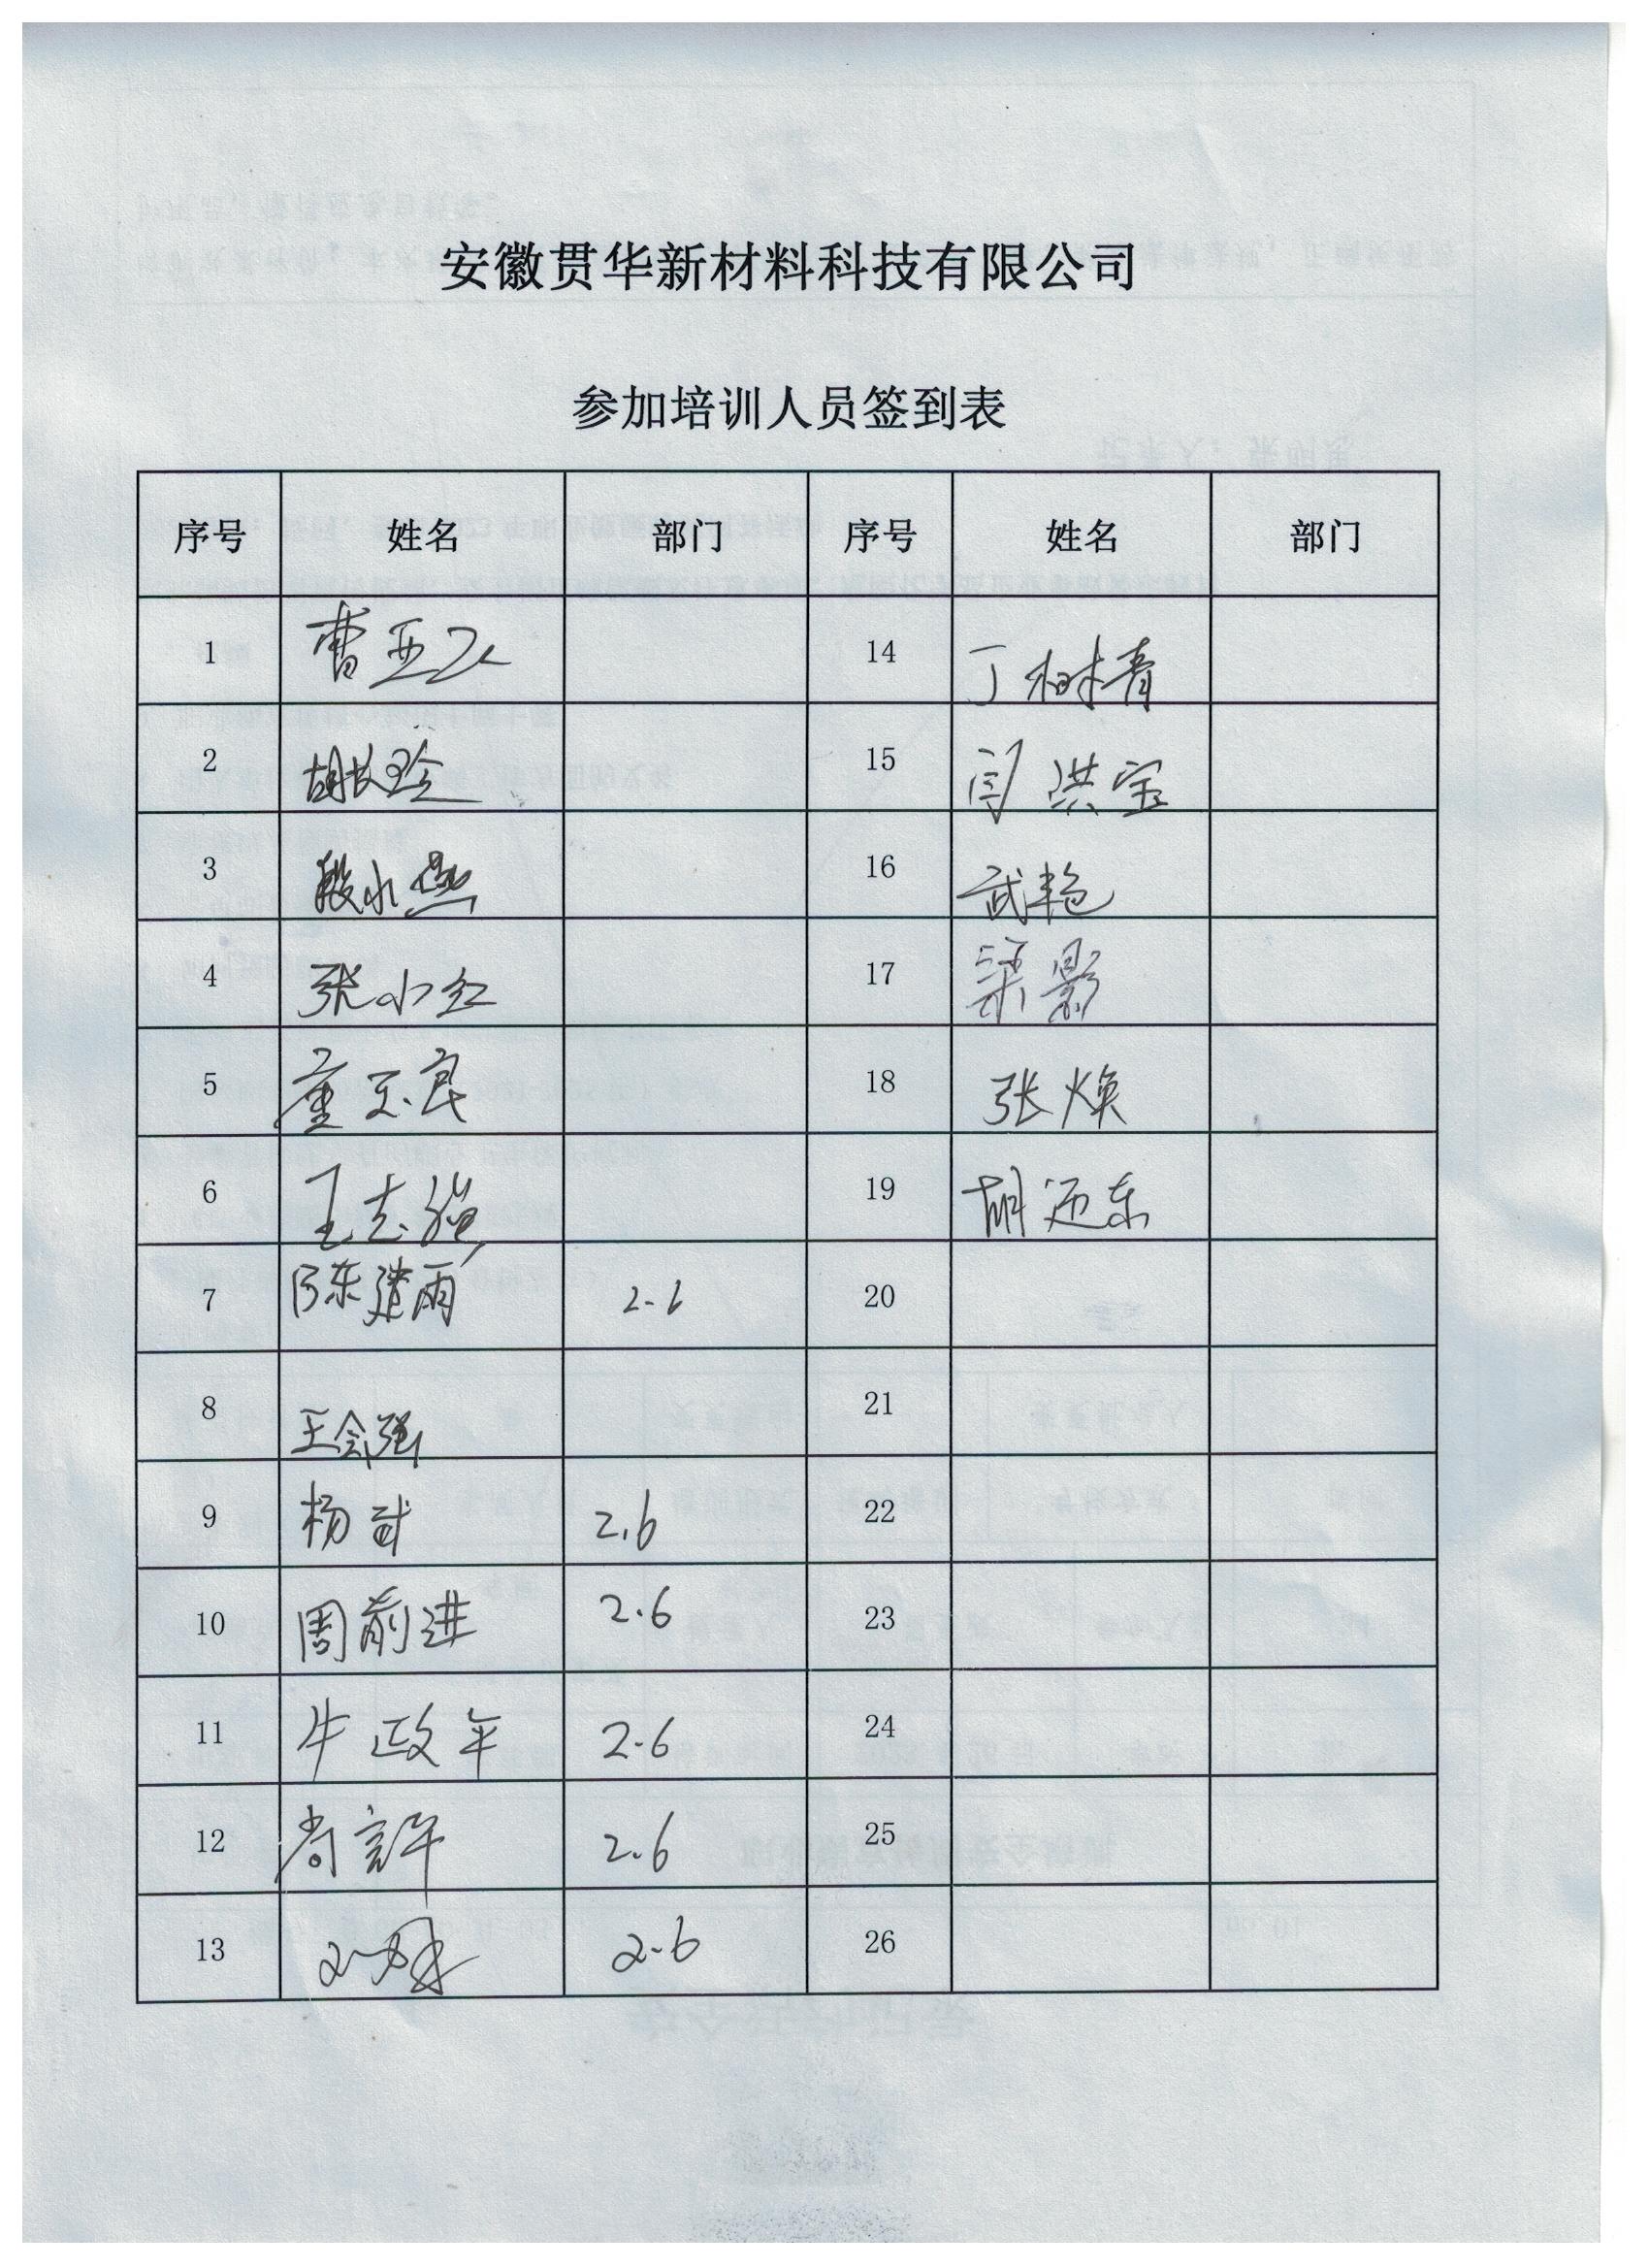 安徽贯华新材料科技有限公司
参加培训人员签到表
序号 姓名 部门 序号 姓名 部门
1 曹亚飞 14 丁树青
2 胡长玲 15 闫洪宝
3 段小燕 16 武艳
4 张小红 17 梁影
5 童玉良 18 张焕
6 王志强 19 胡迎东
7 陈建雨 2.6 20
8 王会强 21
9 杨 2.6 22
10 周前进 2.6 23
11 牛政年 2.6 24
12 尚言午 2.6 25
13 2.6 26